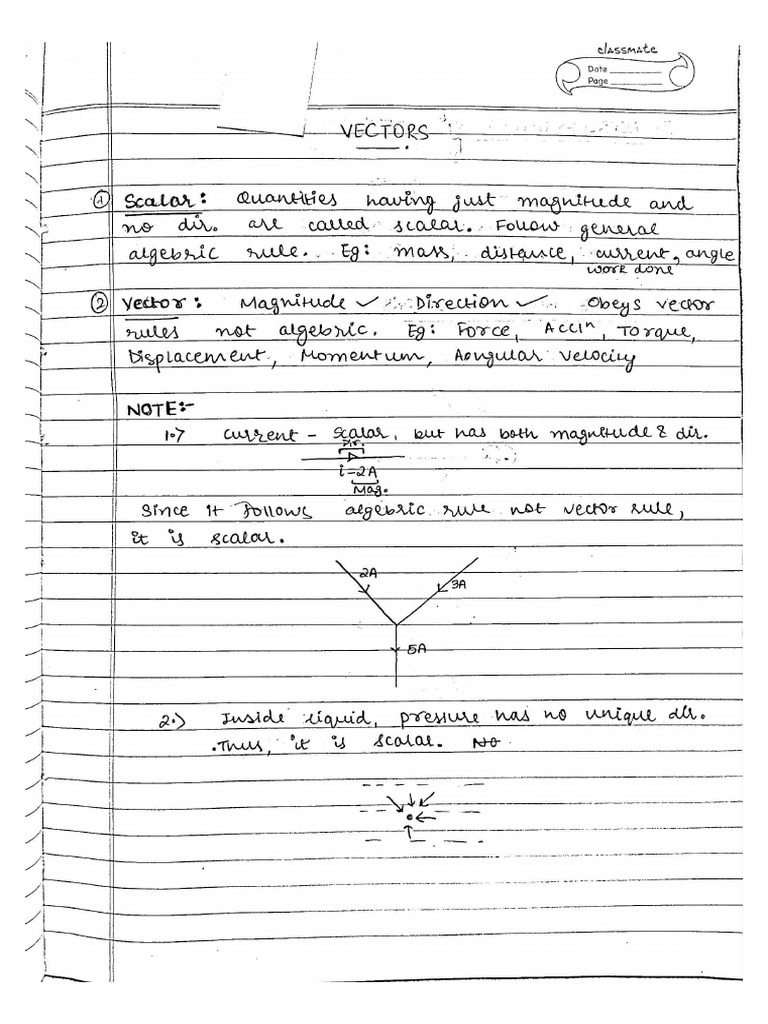 classmate
Date
Page
VECTORS
① Scalar: Quantities having just magnitude and
no dir. are called scalar. Follow general
algebric rule. Eg: mass, distance, current, angle
work done
② Vector: Magnitude ✓ Direction ✓ Obeys vector
rules not algebric. Eg: Force, Accln, Torque,
Displacement, Momentum, Aongular velocity
NOTE:-
1.> current - scalar, but has both magnitude & dir.
Dir.
i=2A
Mag.
Since it follows algebric rule not vector rule,
it is scalar.
2A
3A
5A
2.> Inside liquid, pressure has no unique dir.
.Thus, it is scalar. No